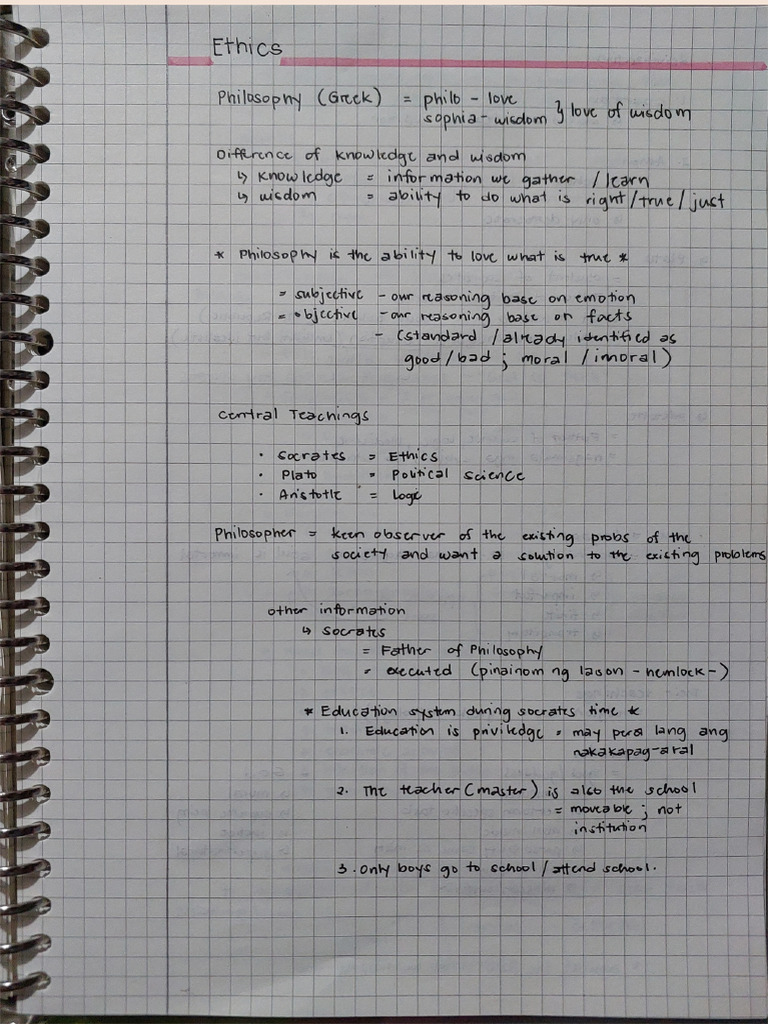 Ethics
Philosophy (Greek) = philo - love
sophia - wisdom } love of wisdom
Difference of knowledge and wisdom
↳ knowledge = information we gather / learn
↳ wisdom = ability to do what is right/true/just
* Philosophy is the ability to love what is true *
= subjective - our reasoning base on emotion
= objective - our reasoning base on facts
- (standard / already identified as
good/bad ; moral / imoral)
Central Teachings
· Socrates = Ethics
· Plato = Political science
· Aristotle = Logic
Philosopher = keen observer of the existing probs of the
society and want a solution to the existing problems
other information
↳ Socrates
= Father of Philosophy
= executed (pinainom ng lason - hemlock -)
* Education system during socrates time *
1. Education is priviledge = may pera lang ang
nakakapag-aral
2. The teacher (master) is also the school
= moveable ; not
institution
3. only boys go to school / attend school.